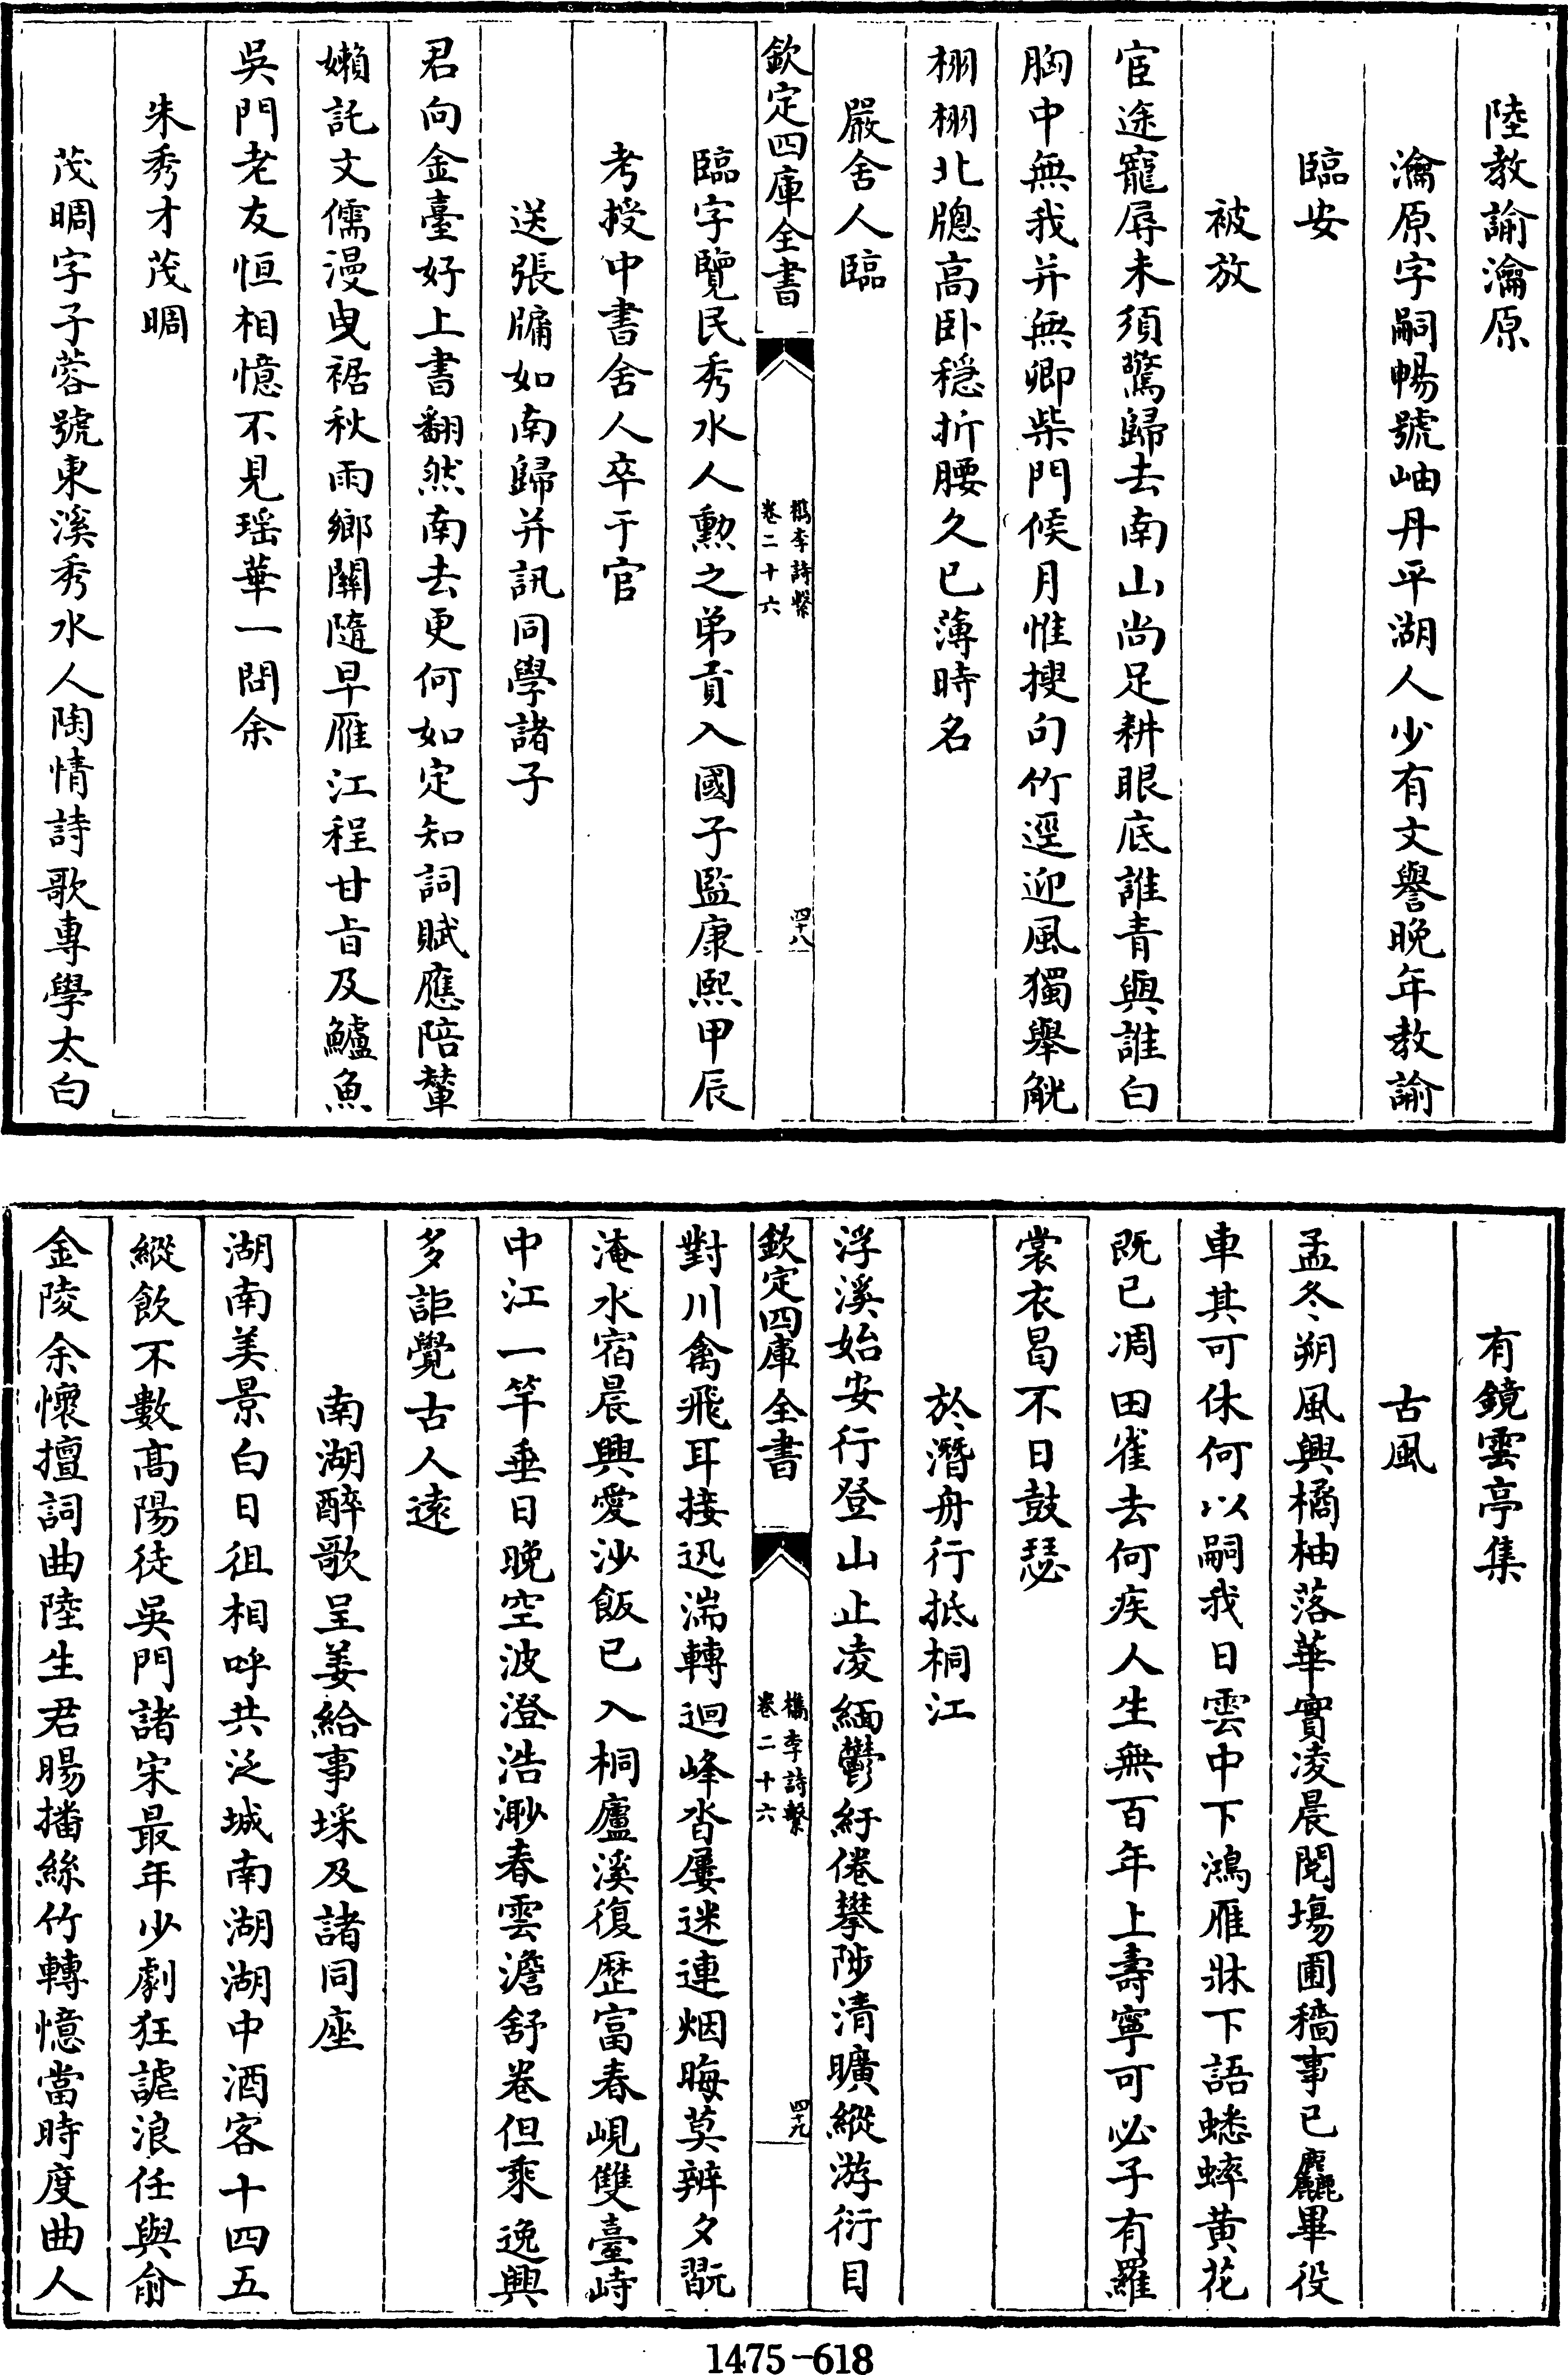 陸教諭瀹原
瀹原字嗣暢號岫丹平湖人少有文譽晚年教諭
臨安
被放
宦途寵辱未須驚歸去南山尚足耕眼底誰青與誰白
胸中無我并無卿柴門候月惟搜句竹逕迎風獨舉觥
栩栩北牕高卧穏折腰久已薄時名
嚴舍人臨
欽定四庫全書
檇李詩繫
卷二十六
四十八
臨字覽民秀水人勲之弟貢入國子監康熙甲辰
考授中書舍人卒于官
送張牗如南歸并訊同學諸子
君向金臺好上書翻然南去更何如定知詞賦應陪輦
嬾託文儒漫曳裾秋雨鄉關隨早雁江程甘旨及鱸魚
吳門老友恒相憶不見瑶華一問余
朱秀才茂晭
茂晭字子蓉號東溪秀水人陶情詩歌專學太白
有鏡雲亭集
古風
孟冬朔風興橘柚落華實凌晨閱塲圃穡事已麤畢役
車其可休何以嗣我日雲中下鴻雁牀下語蟋蟀黄花
既已凋田雀去何疾人生無百年上壽寧可必子有羅
裳衣曷不日鼓瑟
於潛舟行抵桐江
浮溪始安行登山止凌緬鬱紆倦攀陟清曠縱游衍目
欽定四庫全書
檇李詩繫
卷二十六
四十九
對川禽飛耳接迅湍轉迴峰沓屢迷連烟晦莫辨夕翫
淹水宿晨興愛沙飯已入桐廬溪復歴富春峴雙臺峙
中江一竿垂日晚空波澄浩渺春雲澹舒卷但乘逸興
多詎覺古人遠
南湖醉歌呈姜給事埰及諸同座
湖南美景白日徂相呼共泛城南湖湖中酒客十四五
縱飲不數髙陽徒吳門諸宋最年少劇狂謔浪任與俞
金陵余懷擅詞曲陸生君暘播絲竹轉憶當時度曲人
1475-618